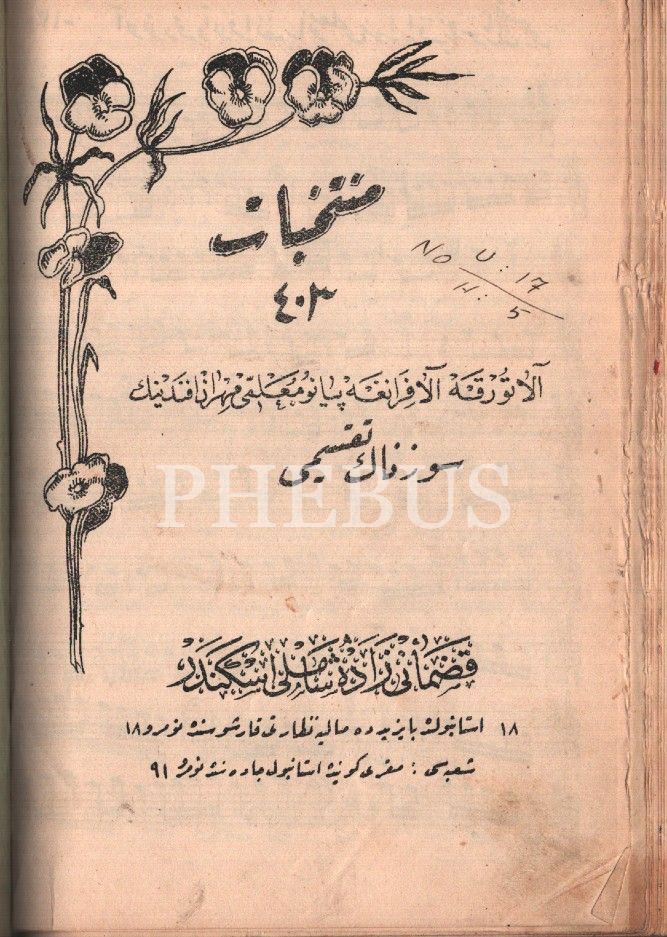 منتخبات
No U: 17
H: 5
٤٠٣
آلاتورقه آلافرانغه پیانو معلمی مهران افندینك
سوزناك تقسیمی
PHEBUS
قضمانی زاده شاملی اسكندر
١٨ استانبولده بایزیدده مالیه نظارتی قارشوسنده نومرو ١٨
شعبه سی : مقری كوینده استانبول جاده سنده نومرو ٩١